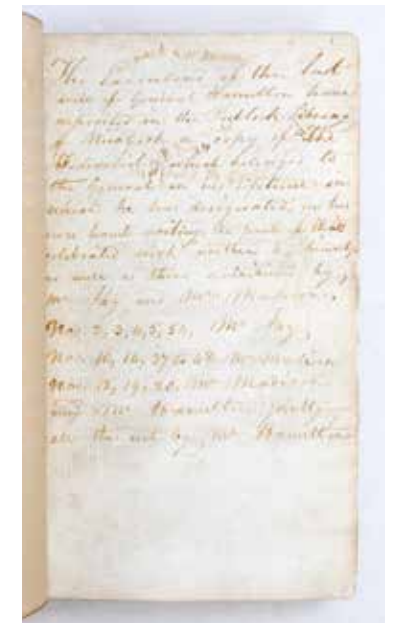 The Executors of the last
will of General Hamilton have
deposited in the Publick Library
of a copy of "The
Federalist" which belonged to
the General in his lifetime in
which he has designated in his
own hand writing the parts of that
celebrated work written by himself
as well as those by
Mr Jay and Mr Madison.
Nos. 2, 3, 4, 5, 54, Mr Jay,
Nos. 10, 14, 37 to 48 Mr Madison
Nos. 18, 19, 20, Mr Madison
and Mr Hamilton jointly
all the rest by Mr Hamilton